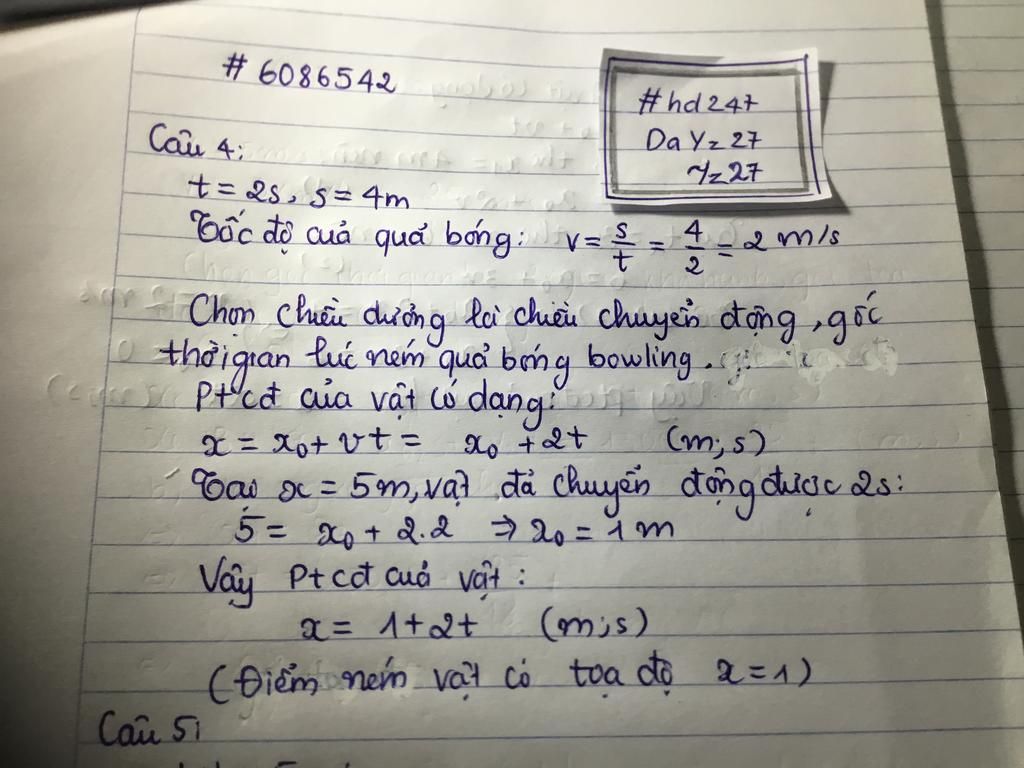 # 6086542
#hd247
DaYz27
Yz27
Câu 4:
t = 2s, s = 4m
Tốc độ cuả quả bóng: v = s/t = 4/2 = 2 m/s
Chọn chiều dưởng là chiều chuyển động, gốc
thời gian lúc ném quả bóng bowling.
Ptcđ của vật có dạng:
x = x₀ + vt = x₀ + 2t (m;s)
Tại x = 5m, vật đả chuyển động được 2s:
5 = x₀ + 2.2 ⇒ x₀ = 1 m
Vậy Ptcđ cuả vật:
x = 1+2t (m;s)
(Điểm ném vật có tọa độ x = 1)
Câu 5: